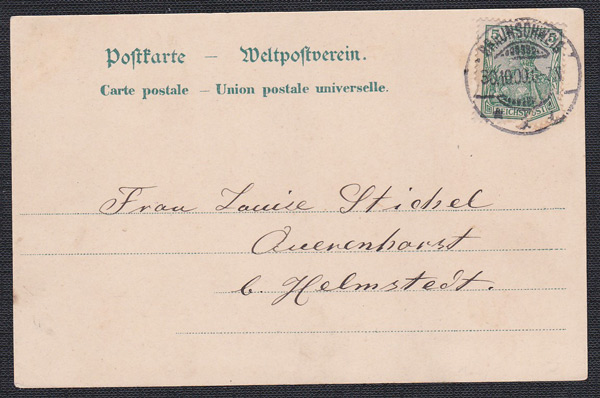 Postkarte — Weltpostverein.
Carte postale — Union postale universelle.
BRAUNSCHWEIG
REICHSPOST
Frau Louise Stichel
Querenhorst
b. Helmstedt.